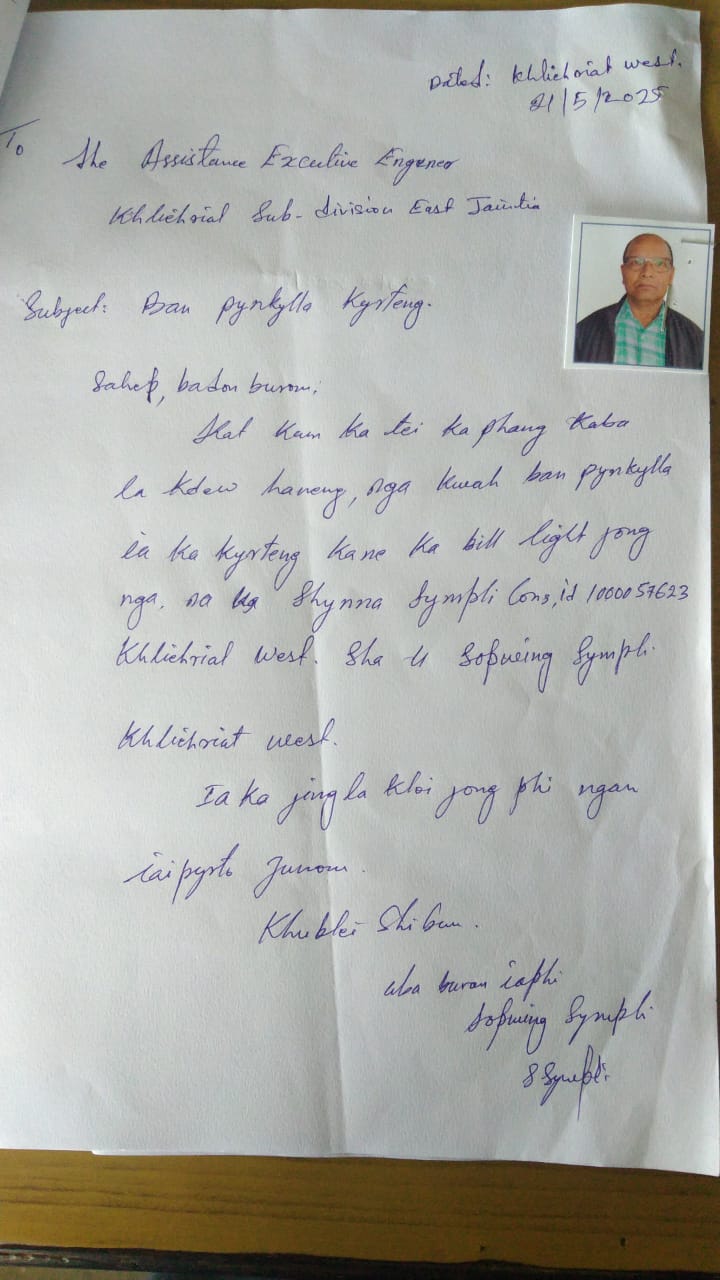 Dated: Khliehriat west.
21/5/2025
To
The Assistance Excutive Engeneer
Khliehriat Sub-division East Jaintia
Subject: Ban pynkylla Kyrteng.
Saheb, badon burom;
Kat kum ka tei ka phang kaba
la kdew haneng, nga kwah ban pynkylla
ia ka kyrteng kane ka bill light jong
nga. na ka Shynna Sympli Cons, id 1000057623
Khliehriat West. Sha u Sofwing Sympli.
Khliehriat west.
Ia ka jingla kloi jong phi ngan
iai pyrto junom.
Khublei Shibun.
uba burom iaphi
Sofwing Sympli
S Sympli